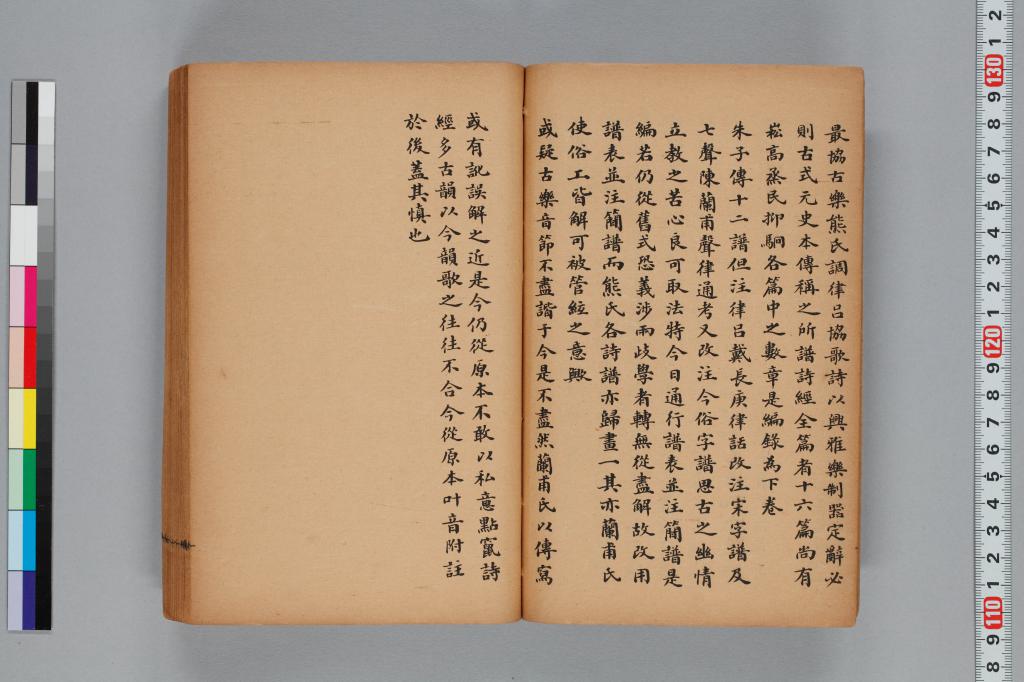 最協古樂熊氏調律呂協歌詩以興雅樂制器定辭必
則古式元史本傳稱之所譜詩經全篇者十六篇尚有
崧高烝民抑駉各篇中之數章是編錄為下卷
朱子傳十二譜但注律呂戴長庚律話改注宋字譜及
七聲陳蘭甫聲律通考又改注今俗字譜思古之幽情
立教之苦心良可取法特今日通行譜表並注簡譜是
編若仍從舊式恐義涉兩歧學者轉無從盡解故改用
譜表並注簡譜而熊氏各詩譜亦歸畫一其亦蘭甫氏
使俗工皆解可被管絃之意歟
或疑古樂音節不盡諧于今是不盡然蘭甫氏以傳寫
或有訛誤解之近是今仍從原本不敢以私意點竄詩
經多古韻以今韻歌之往往不合今從原本叶音附註
於後蓋其慎也
130
120
110